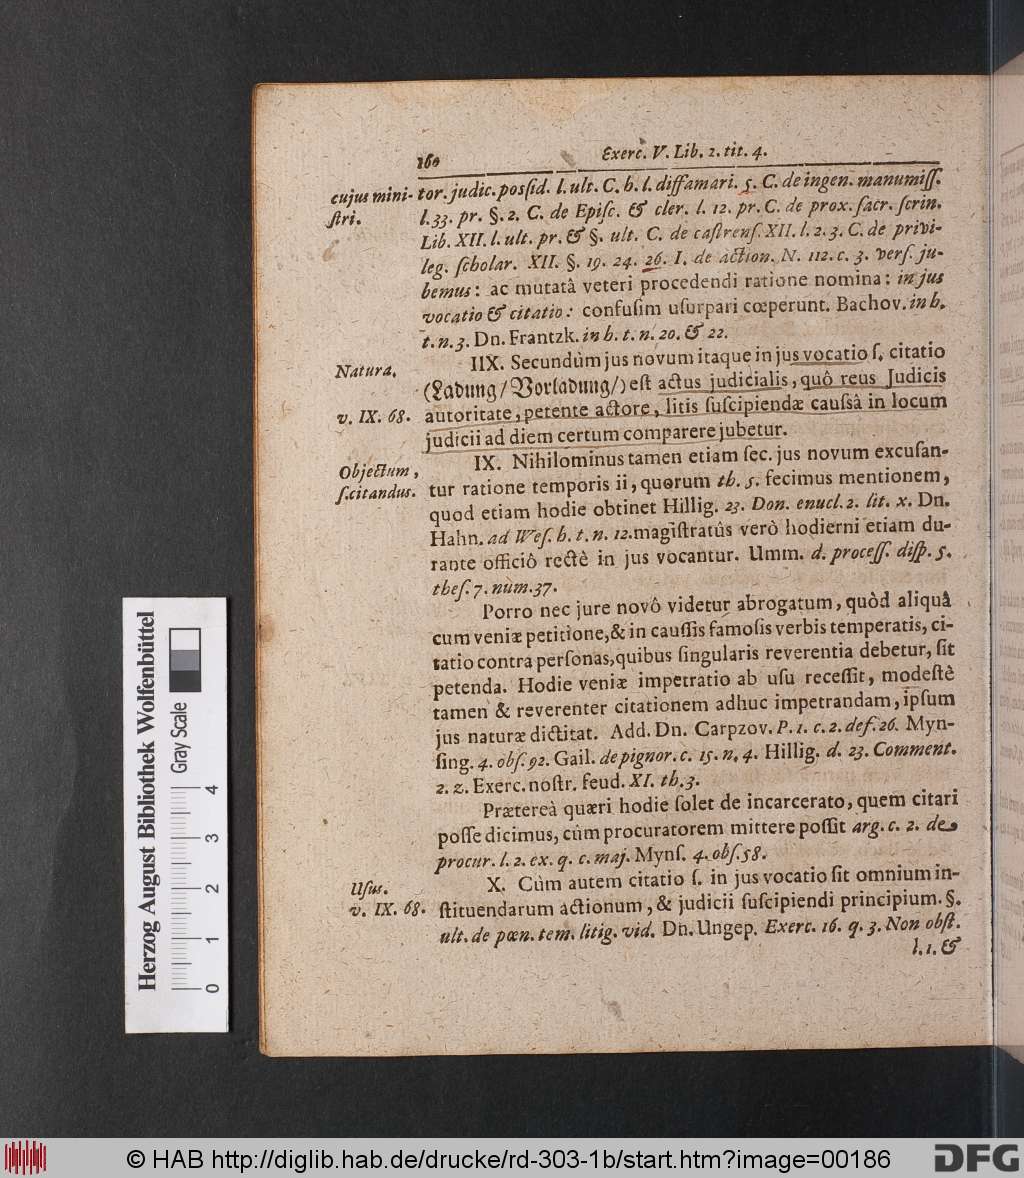 160 Exerc. V. Lib. 2. tit. 4.
cujus mini-
ſtri.
tor. judic. posſid. l. ult. C. h. l. diffamari. 5. C. de ingen. manumiſſ.
l. 33. pr. §. 2. C. de Epiſc. & cler. l. 12. pr. C. de prox. ſacr. ſcrin.
Lib. XII. l. ult. pr. & §. ult. C. de caſtrenſ. XII. l. 2. 3. C. de privi-
leg. ſcholar. XII. §. 19. 24. 26. I. de action. N. 112. c. 3. verſ. ju-
bemus: ac mutatâ veteri procedendi ratione nomina: in jus
vocatio & citatio: confuſim uſurpari cœperunt. Bachov. in h.
t. n. 3. Dn. Frantzk. in h. t. n. 20. & 22.
Natura.
v. IX. 68.
IIX. Secundùm jus novum itaque in jus vocatio ſ. citatio
(Ladung/Vorladung/) eſt actus judicialis, quô reus Judicis
autoritate, petente actore, litis ſuſcipiendæ cauſsâ in locum
judicii ad diem certum comparere jubetur.
Objectum,
ſ. citandus.
IX. Nihilominus tamen etiam ſec. jus novum excuſan-
tur ratione temporis ii, quorum th. 5. fecimus mentionem,
quod etiam hodie obtinet Hillig. 23. Don. enucl. 2. lit. x. Dn.
Hahn. ad Weſ. h. t. n. 12. magiſtratûs verò hodierni etiam du-
rante officiô rectè in jus vocantur. Umm. d. proceſſ. diſp. 5.
theſ. 7. num. 37.
Porro nec jure novô videtur abrogatum, quòd aliquâ
cum veniæ petitione, & in cauſſis famoſis verbis temperatis, ci-
tatio contra perſonas, quibus ſingularis reverentia debetur, ſit
petenda. Hodie veniæ impetratio ab uſu receſſit, modeſtè
tamen & reverenter citationem adhuc impetrandam, ipſum
jus naturæ dictitat. Add. Dn. Carpzov. P. 1. c. 2. def. 26. Myn-
ſing. 4. obſ. 92. Gail. de pignor. c. 15. n. 4. Hillig. d. 23. Comment.
2. z. Exerc. noſtr. feud. XI. th. 3.
Prætereà quæri hodie ſolet de incarcerato, quem citari
poſſe dicimus, cùm procuratorem mittere poſſit arg. c. 2. de
procur. l. 2. ex. q. c. maj. Mynſ. 4. obſ. 58.
Uſus.
v. IX. 68.
X. Cùm autem citatio ſ. in jus vocatio ſit omnium in-
ſtituendarum actionum, & judicii ſuſcipiendi principium. §.
ult. de pœn. tem. litig. vid. Dn. Ungep. Exerc. 16. q. 3. Non obſt.
l. 1. &
Herzog August Bibliothek Wolfenbüttel
Gray Scale
0 1 2 3 4
© HAB http://diglib.hab.de/drucke/rd-303-1b/start.htm?image=00186
DFG